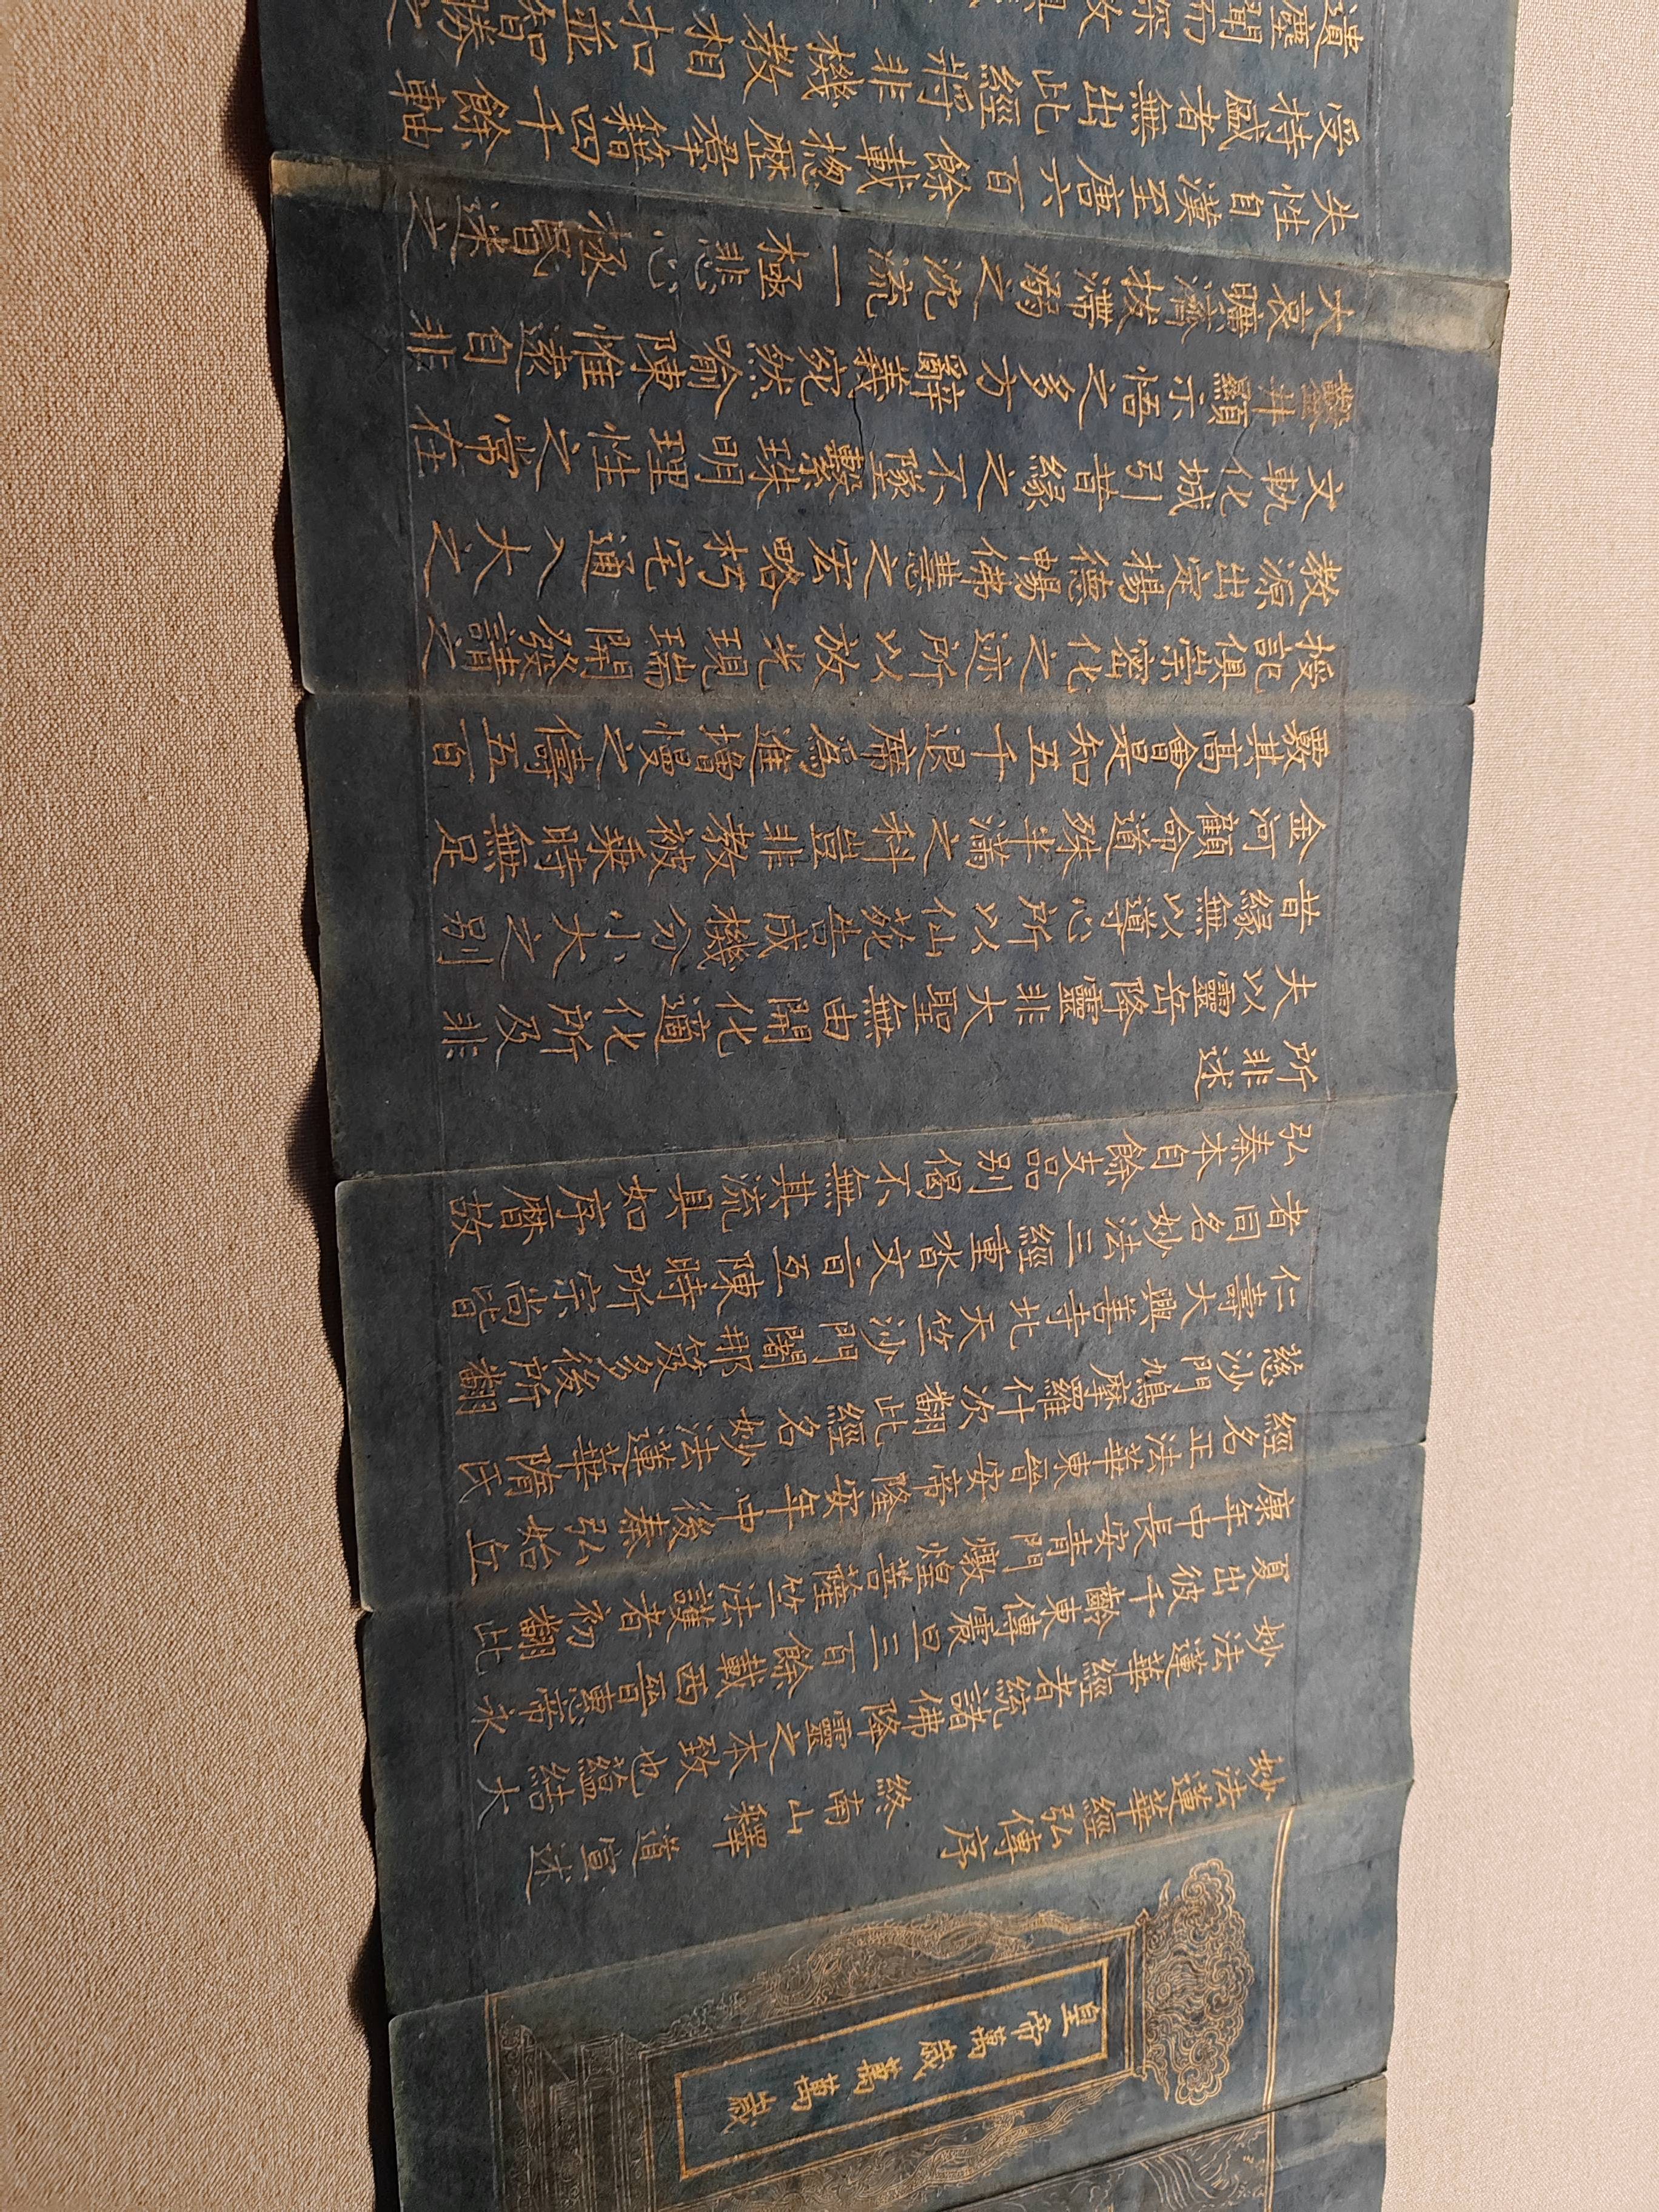 皇帝萬歲萬萬歲
妙法蓮華經弘傳序
終南山釋 道宣述
妙法蓮華經者統諸佛降靈之本致也蘊結大
夏出彼千齡東傳震旦三百餘載西晉惠帝永
康年中長安青門燉煌菩薩竺法護者初翻此
經名正法華東晉安帝隆安年中後秦弘始丘
慈沙門鳩摩羅什次翻此經名妙法蓮華隋氏
仁壽大興善寺北天竺沙門闍那笈多後所翻
者同名妙法三經重沓文旨互陳時所宗尚皆
弘秦本自餘支品別偈不無其流具如序曆故
所非述
夫以靈岳降靈非大聖無由開化適化所及非
昔緣無以導心所以仙苑告成機分小大之別
金河顧命道殊半滿之科豈非教被乘時無足
覈其高會是知五千退席為進增慢之儔五百
授記俱崇密化之迹所以放光現瑞開發請之
教源出定揚德暢佛慧之宏略朽宅通入大之
文軌化城引昔緣之不墜繫珠明理性之常在
鑿井顯示悟之多方辭義宛然喻陳惟遠自非
大哀曠濟拔滯溺之沈流一極悲心拯昏迷之
失性自漢至唐六百餘載揔歷群籍四千餘軸
受持盛者無出此經將非機教相扣並智勝之
遺塵聞而深敬